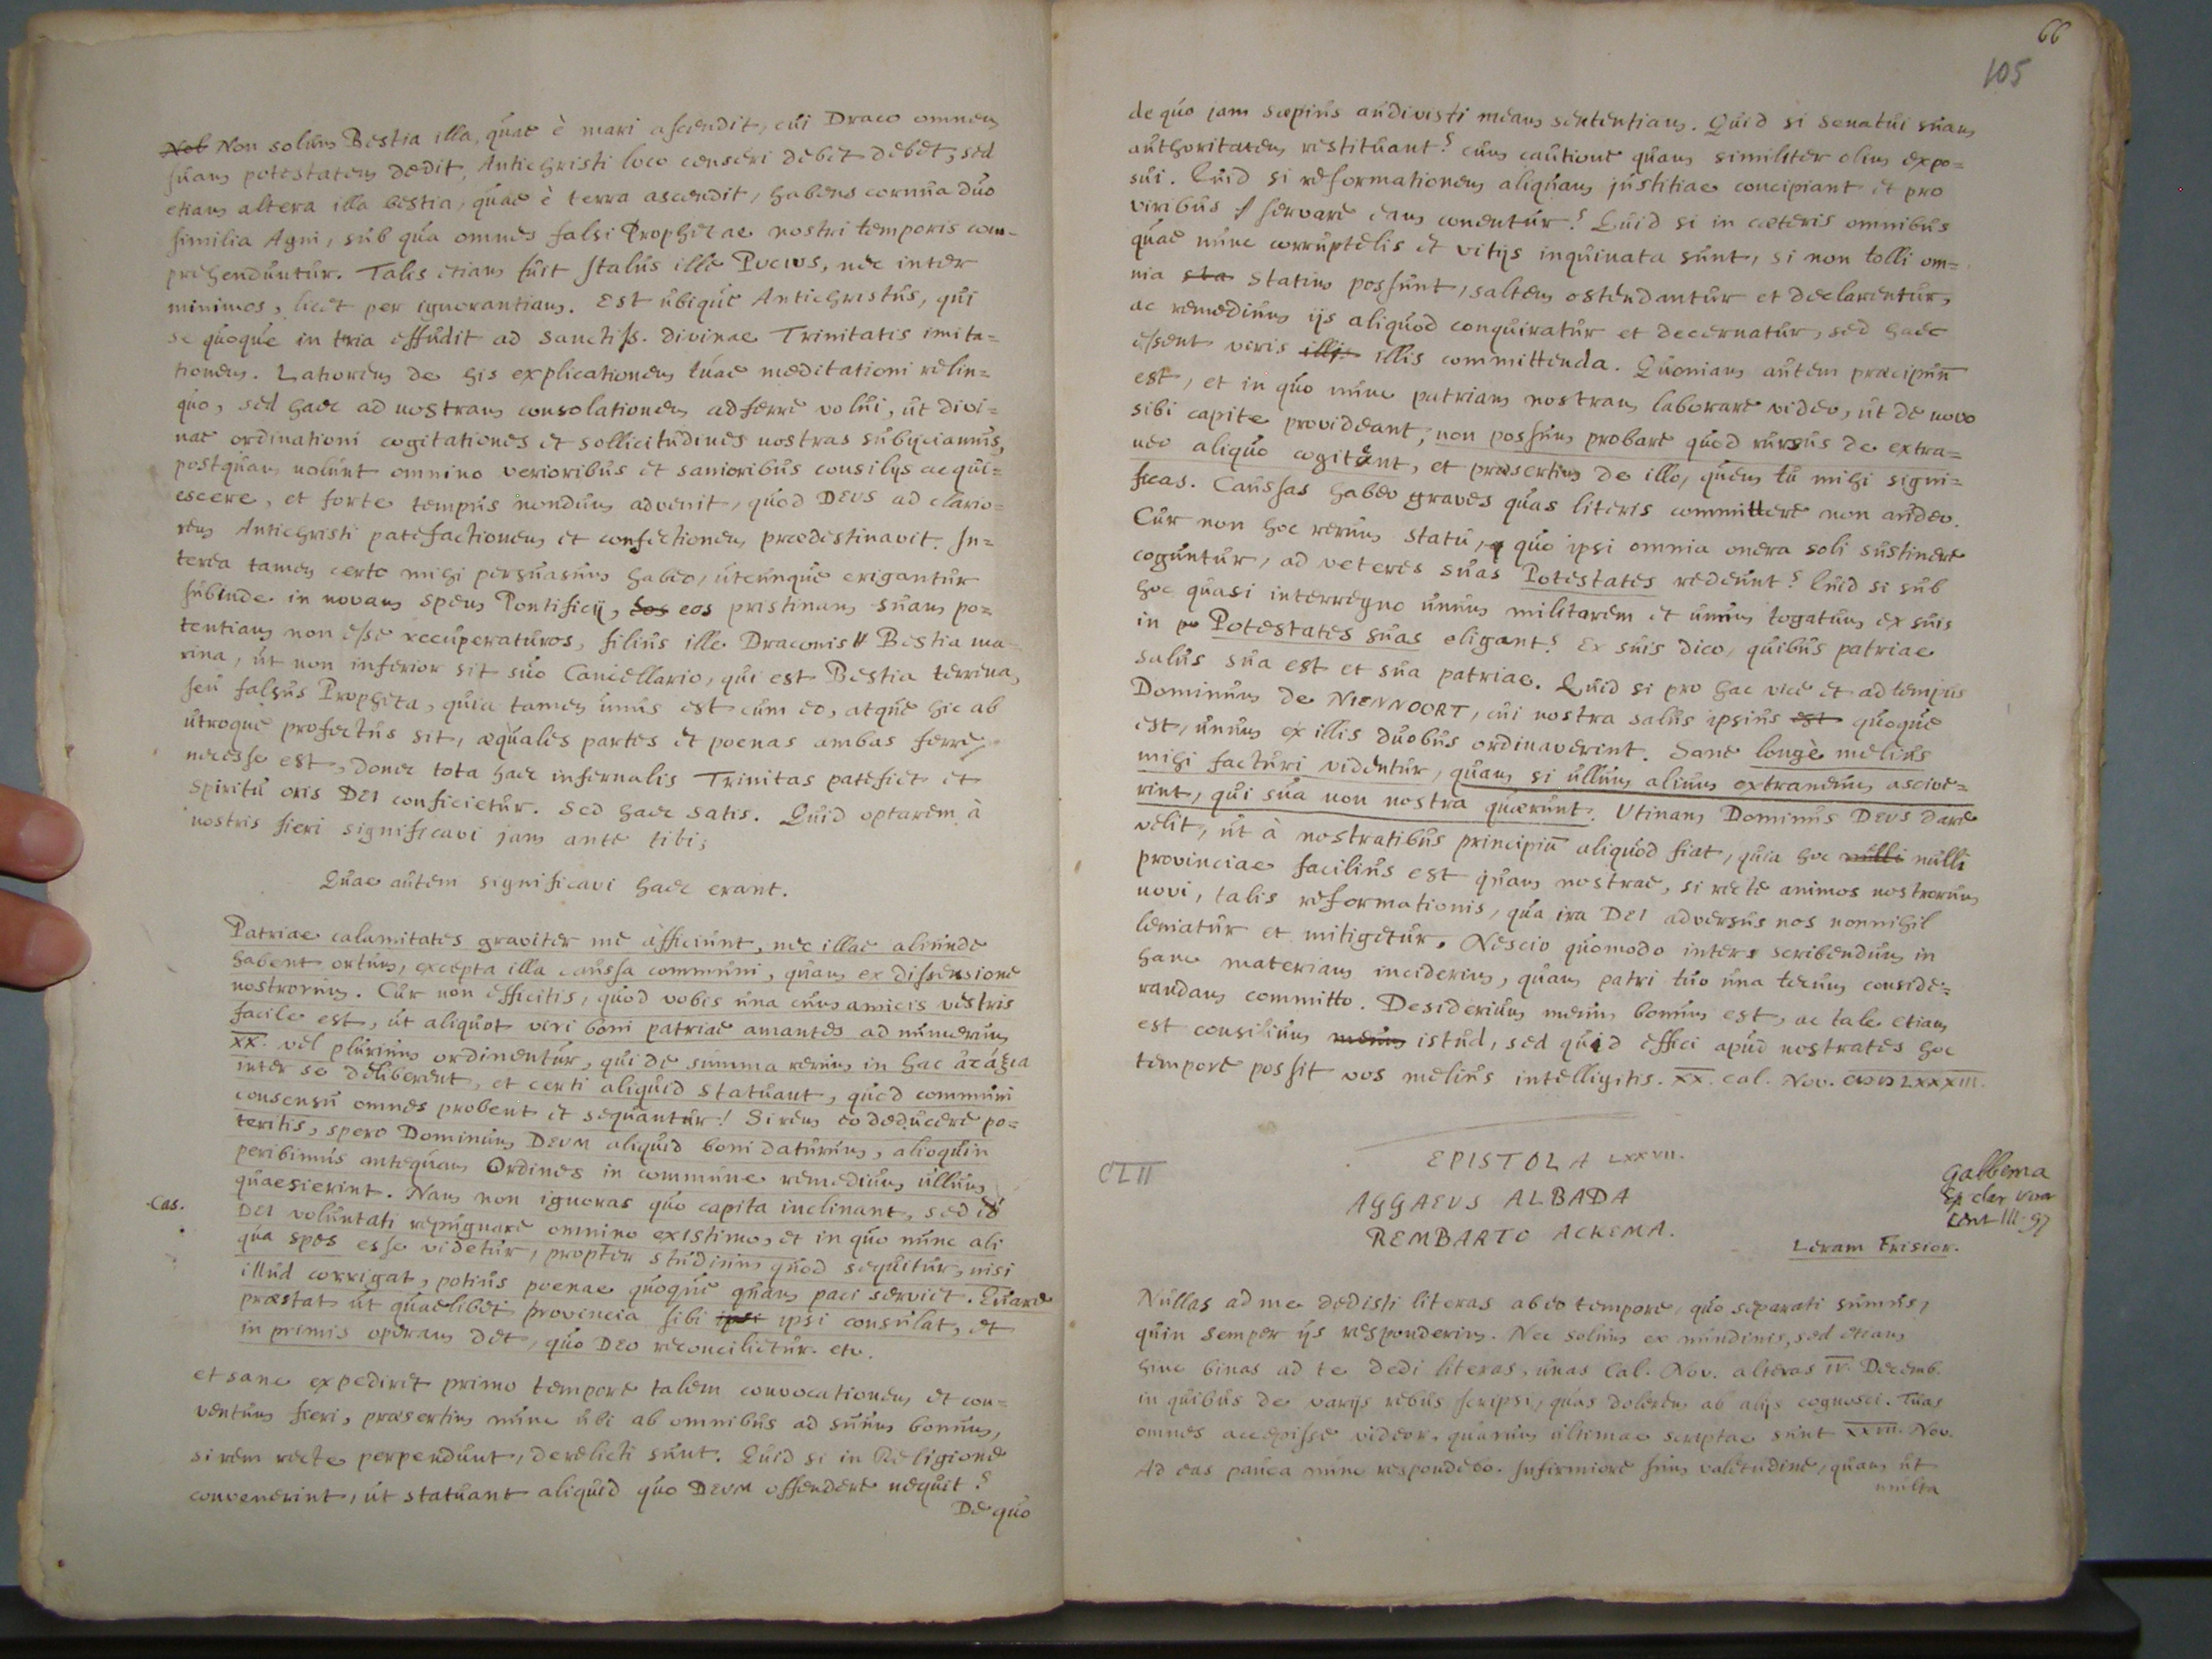 Non solum Bestia illa, quae è mari ascendit, cui Draco omnem
suam potestatem dedit, Antichristi loco censeri debet debet, sed
etiam altera illa bestia, quae è terra ascendit, habens cornua duo
similia Agni, sub qua omnes falsi Prophetae nostri temporis com-
prehenduntur. Talis etiam fuit Italus ille Pucius, nec inter
minimos, licet per ignorantiam. Est ubique Antichristus, qui
se quoque in tria effudit ad sanctiss. divinae Trinitatis imita=
tionem. Latiorem de his explicationem tuae meditationi relin=
quo, sed haec ad nostram consolationem adferre volui, ut divi=
nae ordinationi cogitationes et sollicitudines nostras subijciamus,
postquam nolunt omnino verioribus et sanioribus consilijs acqui=
escere, et forte tempus nondum advenit, quod DEUS ad clario=
rem Antichristi patefactionem et confectionem praedestinavit. In=
terea tamen certo mihi persuasum habeo, utcunque erigantur
subinde in novam spem Pontificij, eos pristinam suam po=
tentiam non esse recuperaturos, filius ille Draconis Bestia ma-
rina, ut non inferior sit suo Cancellario, qui est Bestia terrena,
seu falsus Propheta, quia tamen unus est cum eo, atque hic ab
utroque profectus sit, aequales partes et poenas ambas ferre
necesse est, donec tota haec infernalis Trinitas patefiet et
spiritu oris DEI conficietur. Sed haec satis. Quid optarem à
nostris fieri significavi jam ante tibi;
Quae autem significavi haec erant.
Patriae calamitates graviter me afficiunt, nec illae aliunde
habent ortum, excepta illa caussa communi, quam ex dissensione
nostrorum. Cur non efficitis, quod vobis una cum amicis vestris
facile est, ut aliquot viri boni patriae amantes ad numerum
XX. vel plurium ordinentur, qui de summa rerum in hac ἀταξια
inter se deliberent, et certi aliquid statuant, quod communi
consensu omnes probent et sequantur! Si rem eo deducere po=
teritis, spero Dominum DEUM aliquid boni daturum, alioquin
peribimus antequam Ordines in commune remedium ullum
quaesierint. Nam non ignoras quo capita inclinant, sed id
Cas.
DEI voluntati repugnare omnino existimo, et in quo nunc ali
qua spes esse videtur, propter studium quod sequitur, nisi
illud corrigat, potius poenae quoque quam paci serviet. Quare
praestat ut quaelibet provincia sibi ipsi consulat, et
in primis operam det, quo DEO reconcilietur. etc.
et sane expediret primo tempore talem convocationem et con=
ventum fieri, praesertim nunc ubi ab omnibus ad suum bonum,
si rem recte perpendunt, derelicti sunt. Quid si in Religione
convenerint, ut statuant aliquid quo DEUM offendere nequit?
De quo
66
105
de quo jam saepius audivisti meam sententiam. Quid si senatui suam
authoritatem restituant? cum cautione quam similiter olim expo=
sui. Quid si reformationem aliquam justitiae concipiant et pro
viribus servare eam conentur? Quid si in caeteris omnibus
quae nunc corruptelis et vitijs inquinata sunt, si non tolli om=
nia statim possunt, saltem ostendantur et declarentur,
ac remedium ijs aliquod conquiratur et decernatur, sed haec
essent viris illis committenda. Quoniam autem praecipuū
est, et in quo nunc patriam nostram laborare video, ut de novo
sibi capite provideant, non possum probare quod rursus de extra=
neo aliquo cogitent, et praesertim de illo, quem tu mihi signi=
ficas. Caussas habeo graves quas literis committere non audeo.
Cur non hoc rerum statu, quo ipsi omnia onera soli sustinere
coguntur, ad veteres suas Potestates redeunt? Quid si sub
hoc quasi interregno unum militarem et unum togatum ex suis
in Potestates suas eligant? Ex suis dico, quibus patriae
salus sua est et sua patriae. Quid si pro hac vice et ad tempus
Dominum de NIENNOORT, cui nostra salus ipsius quoque
est, unum ex illis duobus ordinaverint. Sane longè melius
mihi facturi videntur, quam si ullum alium extraneum ascive=
rint, qui sua non nostra quaerunt. Utinam Dominus DEUS dare
velit, ut à nostratibus principiū aliquod fiat, quia hoc nulli
provinciae facilius est quam nostrae, si recte animos nostrorum
novi, talis reformationis, qua ira DEI adversus nos nonnihil
leniatur et mitigetur. Nescio quomodo inter scribendum in
hanc materiam inciderim, quam patri tuo una tecum conside=
randam committo. Desiderium meum bonum est, ac tale etiam
est consilium istud, sed quid effici apud nostrates hoc
tempore possit vos melius intelligitis. XX. Cal. Nov. LXXXIII.
EPISTOLA LXXVII.
CLII
AGGAEUS ALBADA
REMBARTO ACKEMA.
Gabbema
Ep clar vir
cent III. 97
Leram Frisior.
Nullas ad me dedisti literas ab eo tempore, quo separati sumus,
quin semper ijs responderim. Nec solum ex nundinis, sed etiam
hinc binas ad te dedi literas, unas Cal. Nov. alteras IV. Decemb.
in quibus de varijs rebus scripsi, quas dolerem ab alijs cognosci. Tuas
omnes accepisse videor, quarum ultimae scriptae sunt XXVII. Nov.
Ad eas pauca nunc respondebo. Infirmiore sum valetudine, quam ut
multa